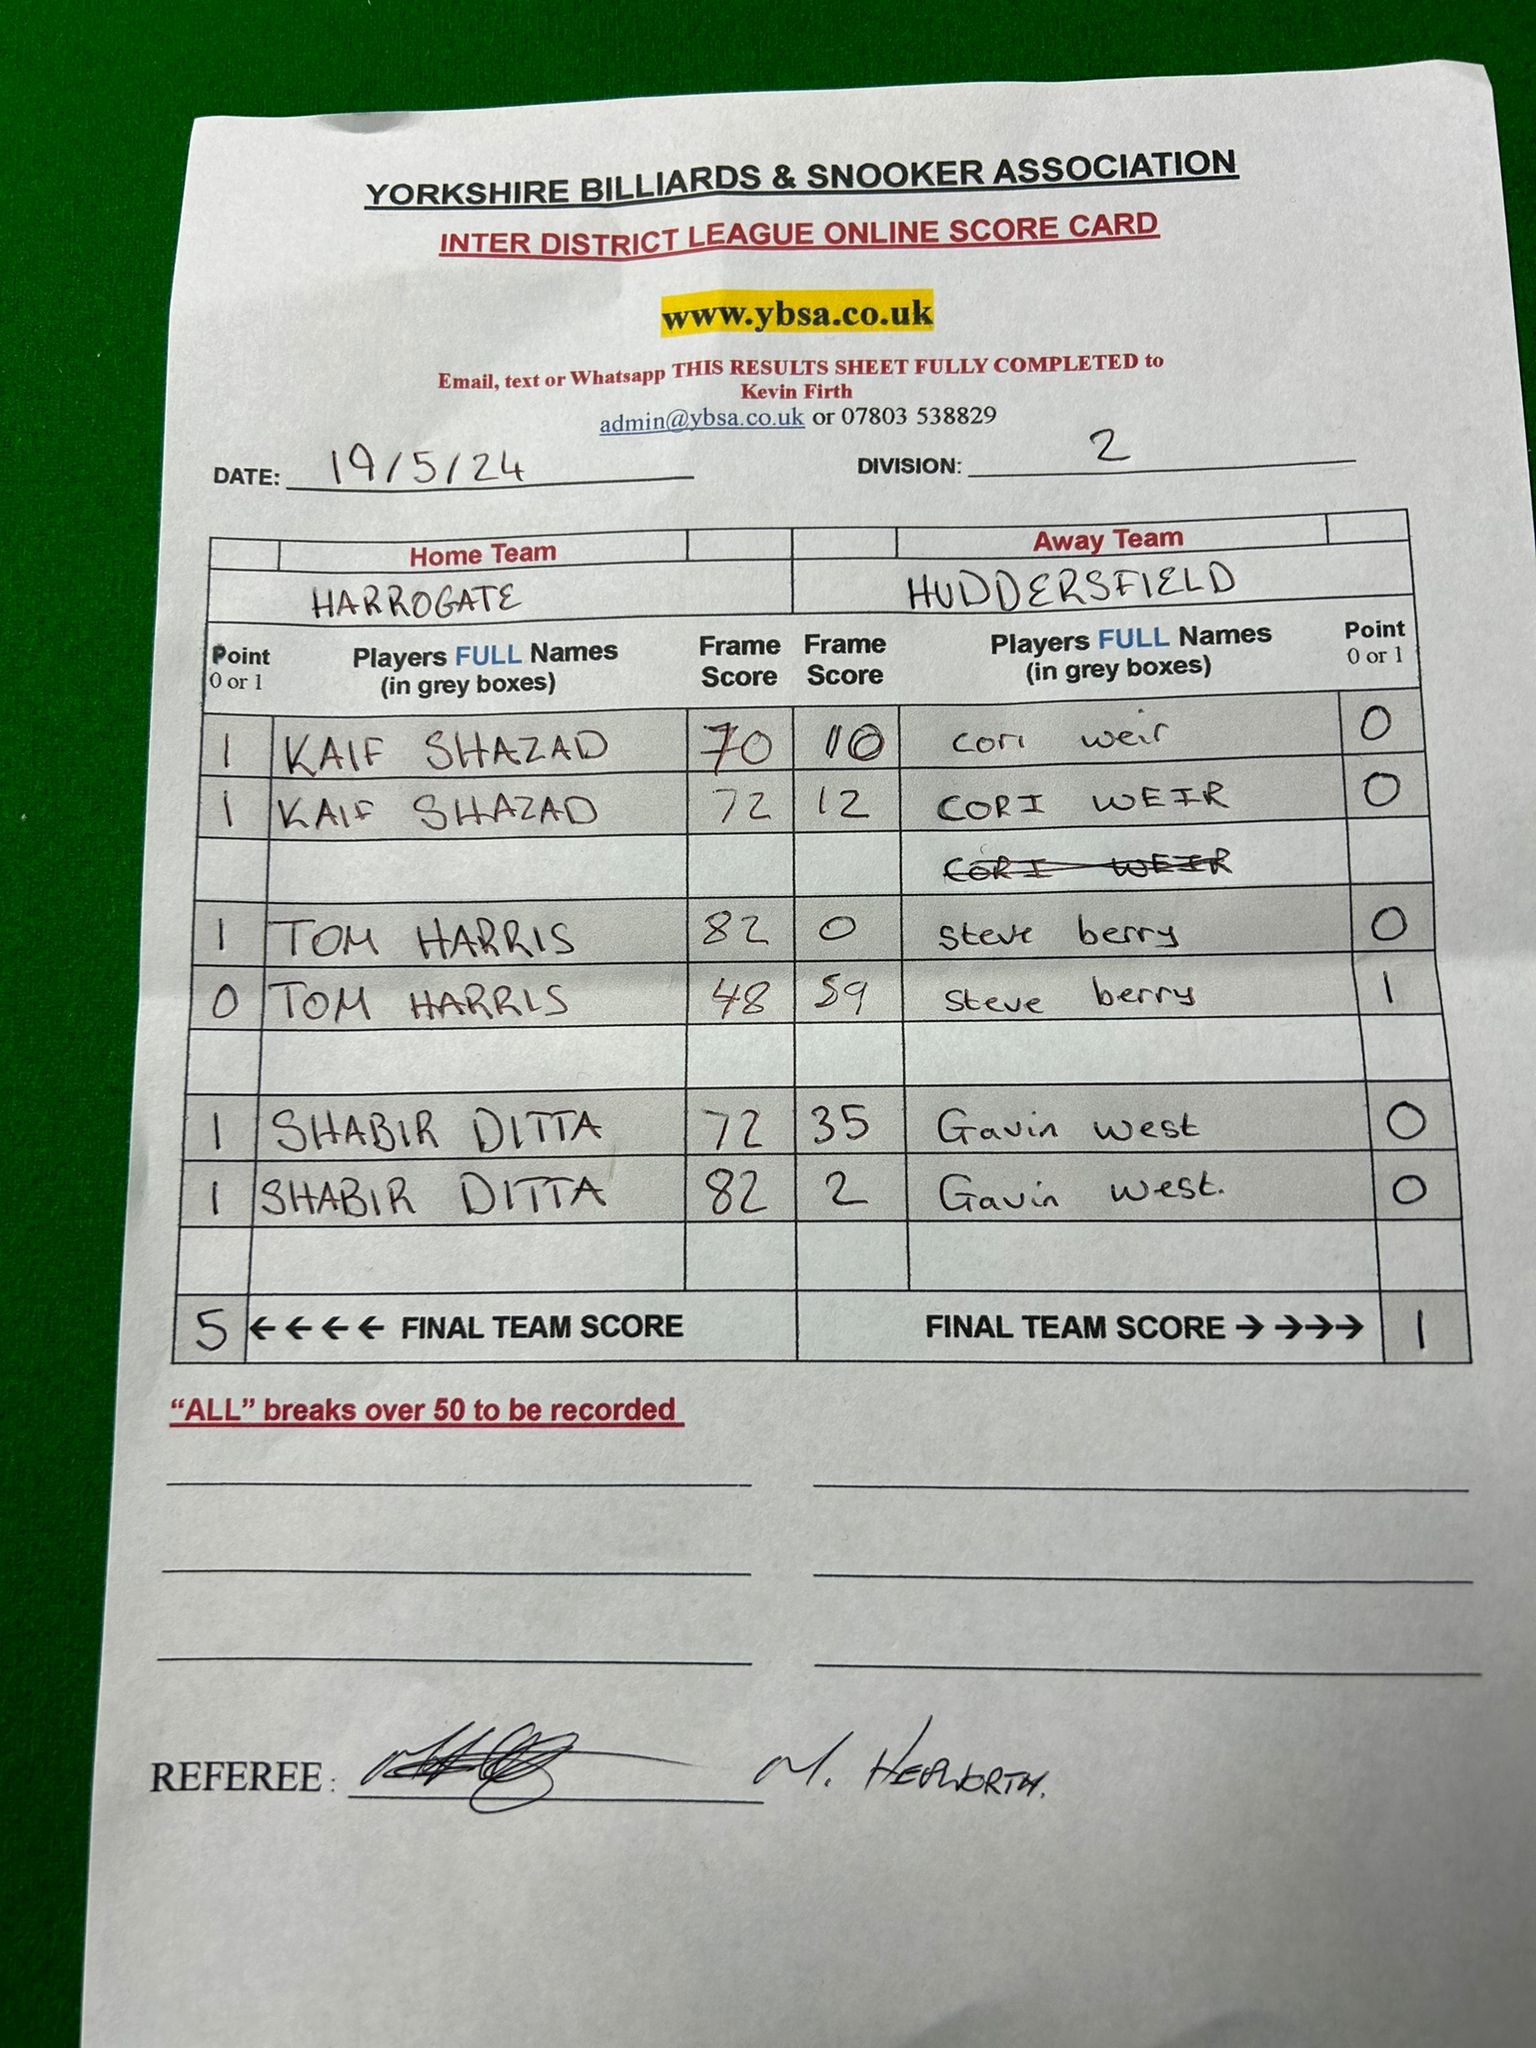 YORKSHIRE BILLIARDS & SNOOKER ASSOCIATION
INTER DISTRICT LEAGUE ONLINE SCORE CARD
www.ybsa.co.uk
Email, text or Whatsapp THIS RESULTS SHEET FULLY COMPLETED to
Kevin Firth
admin@ybsa.co.uk or 07803 538829
DATE: 19/5/24 DIVISION: 2
Home Team Away Team
HARROGATE HUDDERSFIELD
Point 0 or 1 Players FULL Names (in grey boxes) Frame Score Frame Score Players FULL Names (in grey boxes) Point 0 or 1
1 KAIF SHAZAD 70 10 Cori weir 0
1 KAIF SHAZAD 72 12 CORI WEIR 0
CORI WEIR
1 TOM HARRIS 82 0 Steve berry 0
0 TOM HARRIS 48 59 Steve berry 1
1 SHABIR DITTA 72 35 Gavin west 0
1 SHABIR DITTA 82 2 Gavin west. 0
5 ←←←← FINAL TEAM SCORE FINAL TEAM SCORE →→→→ 1
"ALL" breaks over 50 to be recorded
REFEREE: M. HEPWORTH.